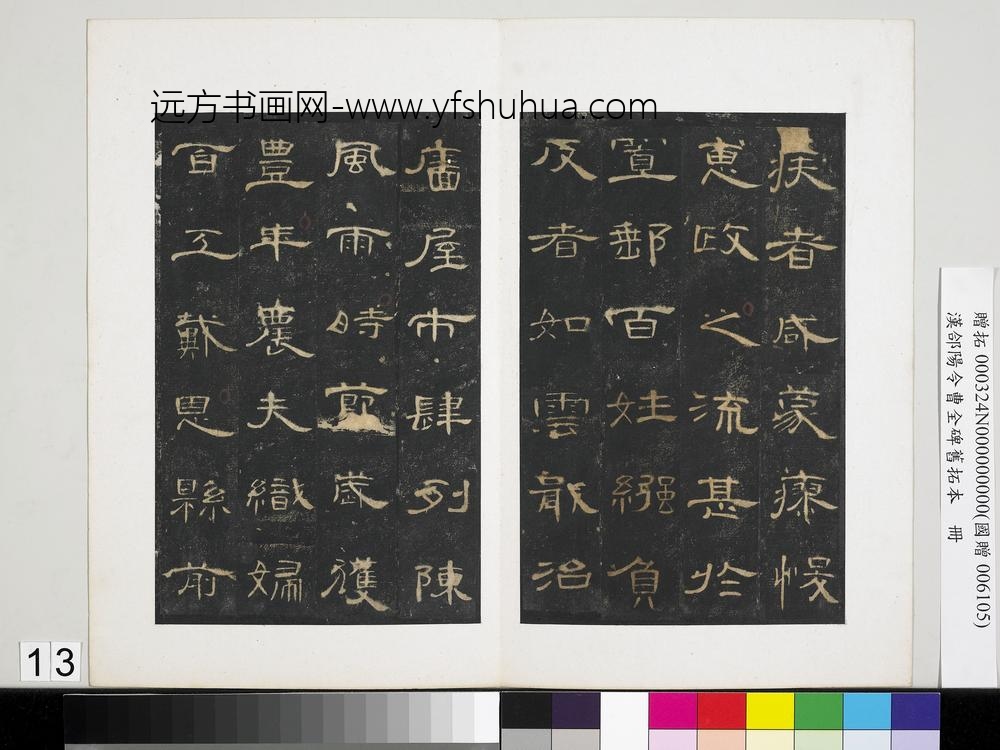 远方书画网-www.yfshuhua.com
疾者咸蒙瘳悛
惠政之流甚於
置郵百姓繦負
反者如雲戢治
廧屋市肆列陳
風雨時節歲獲
豐年農夫織婦
百工戴恩縣前
贈拓 000324N000000000(國贈 006105)
漢郃陽令曹全碑舊拓本 冊
13